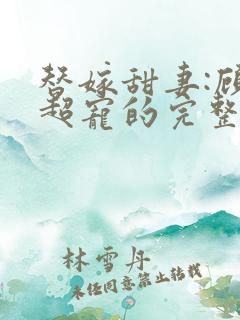 替嫁甜妻:顾
超宠的完整
林雪丹
未经同意禁止转载